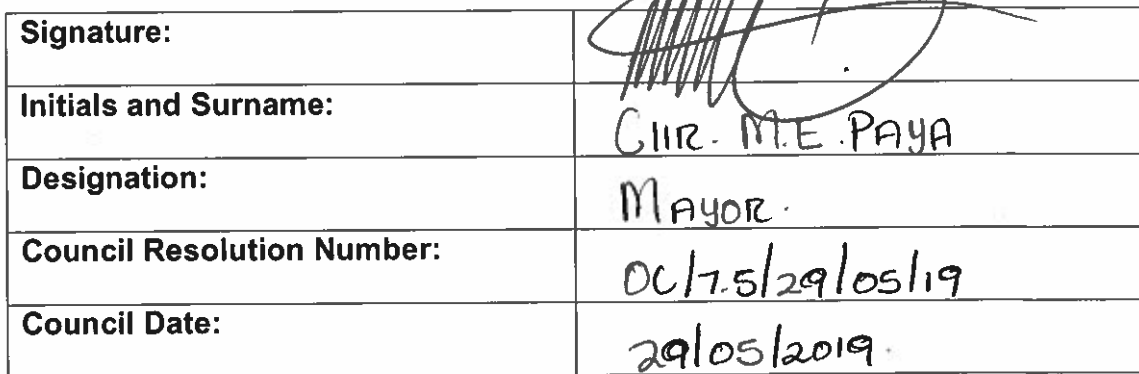 Signature:
Initials and Surname: Cllr. M.E. PAYA
Designation: MAYOR.
Council Resolution Number: OC/7.5/29/05/19
Council Date: 29/05/2019.